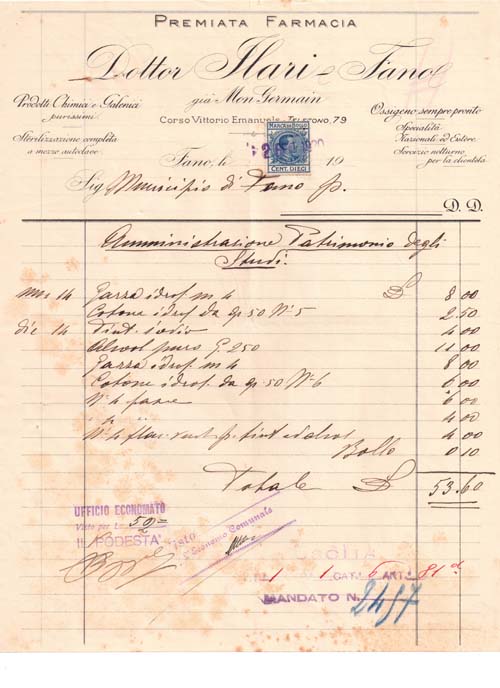 PREMIATA FARMACIA
Dottor Ilari - Fano
già Mon Germain
Prodotti Chimici e Galenici
purissimi
Sterilizzazione completa
a mezzo autoclave
Corso Vittorio Emanuele - TELEFONO, 79
Ossigeno sempre pronto
Specialità
Nazionali ed Estere
Servizio notturno
per la clientela
MARCA DA BOLLO
CENT. DIECI
Fano, li 19
Sig Municipio di Fano p.
D. D.
Amministrazione Patrimonio degli
Studi.
14 Garza idrof. m 4 £ 8 00
Cotone idrof da gr. 50 N. 5 2 50
dic 14 Tint iodio 4 00
Alcool puro G. 250 11 00
Garza idrof. m 4 8 00
Cotone idrof. da gr. 50 N. 6 6 00
N. 4 fasce 6 00
4 00
N. 4 p. tint ed alcol 4 00
Bollo 0 10
Totale £ 53.60
UFFICIO ECONOMATO
Visto per L.
IL PODESTÀ
L'Economo Comunale
1 1 CAT. 6 ART. 81
MANDATO N. 2497